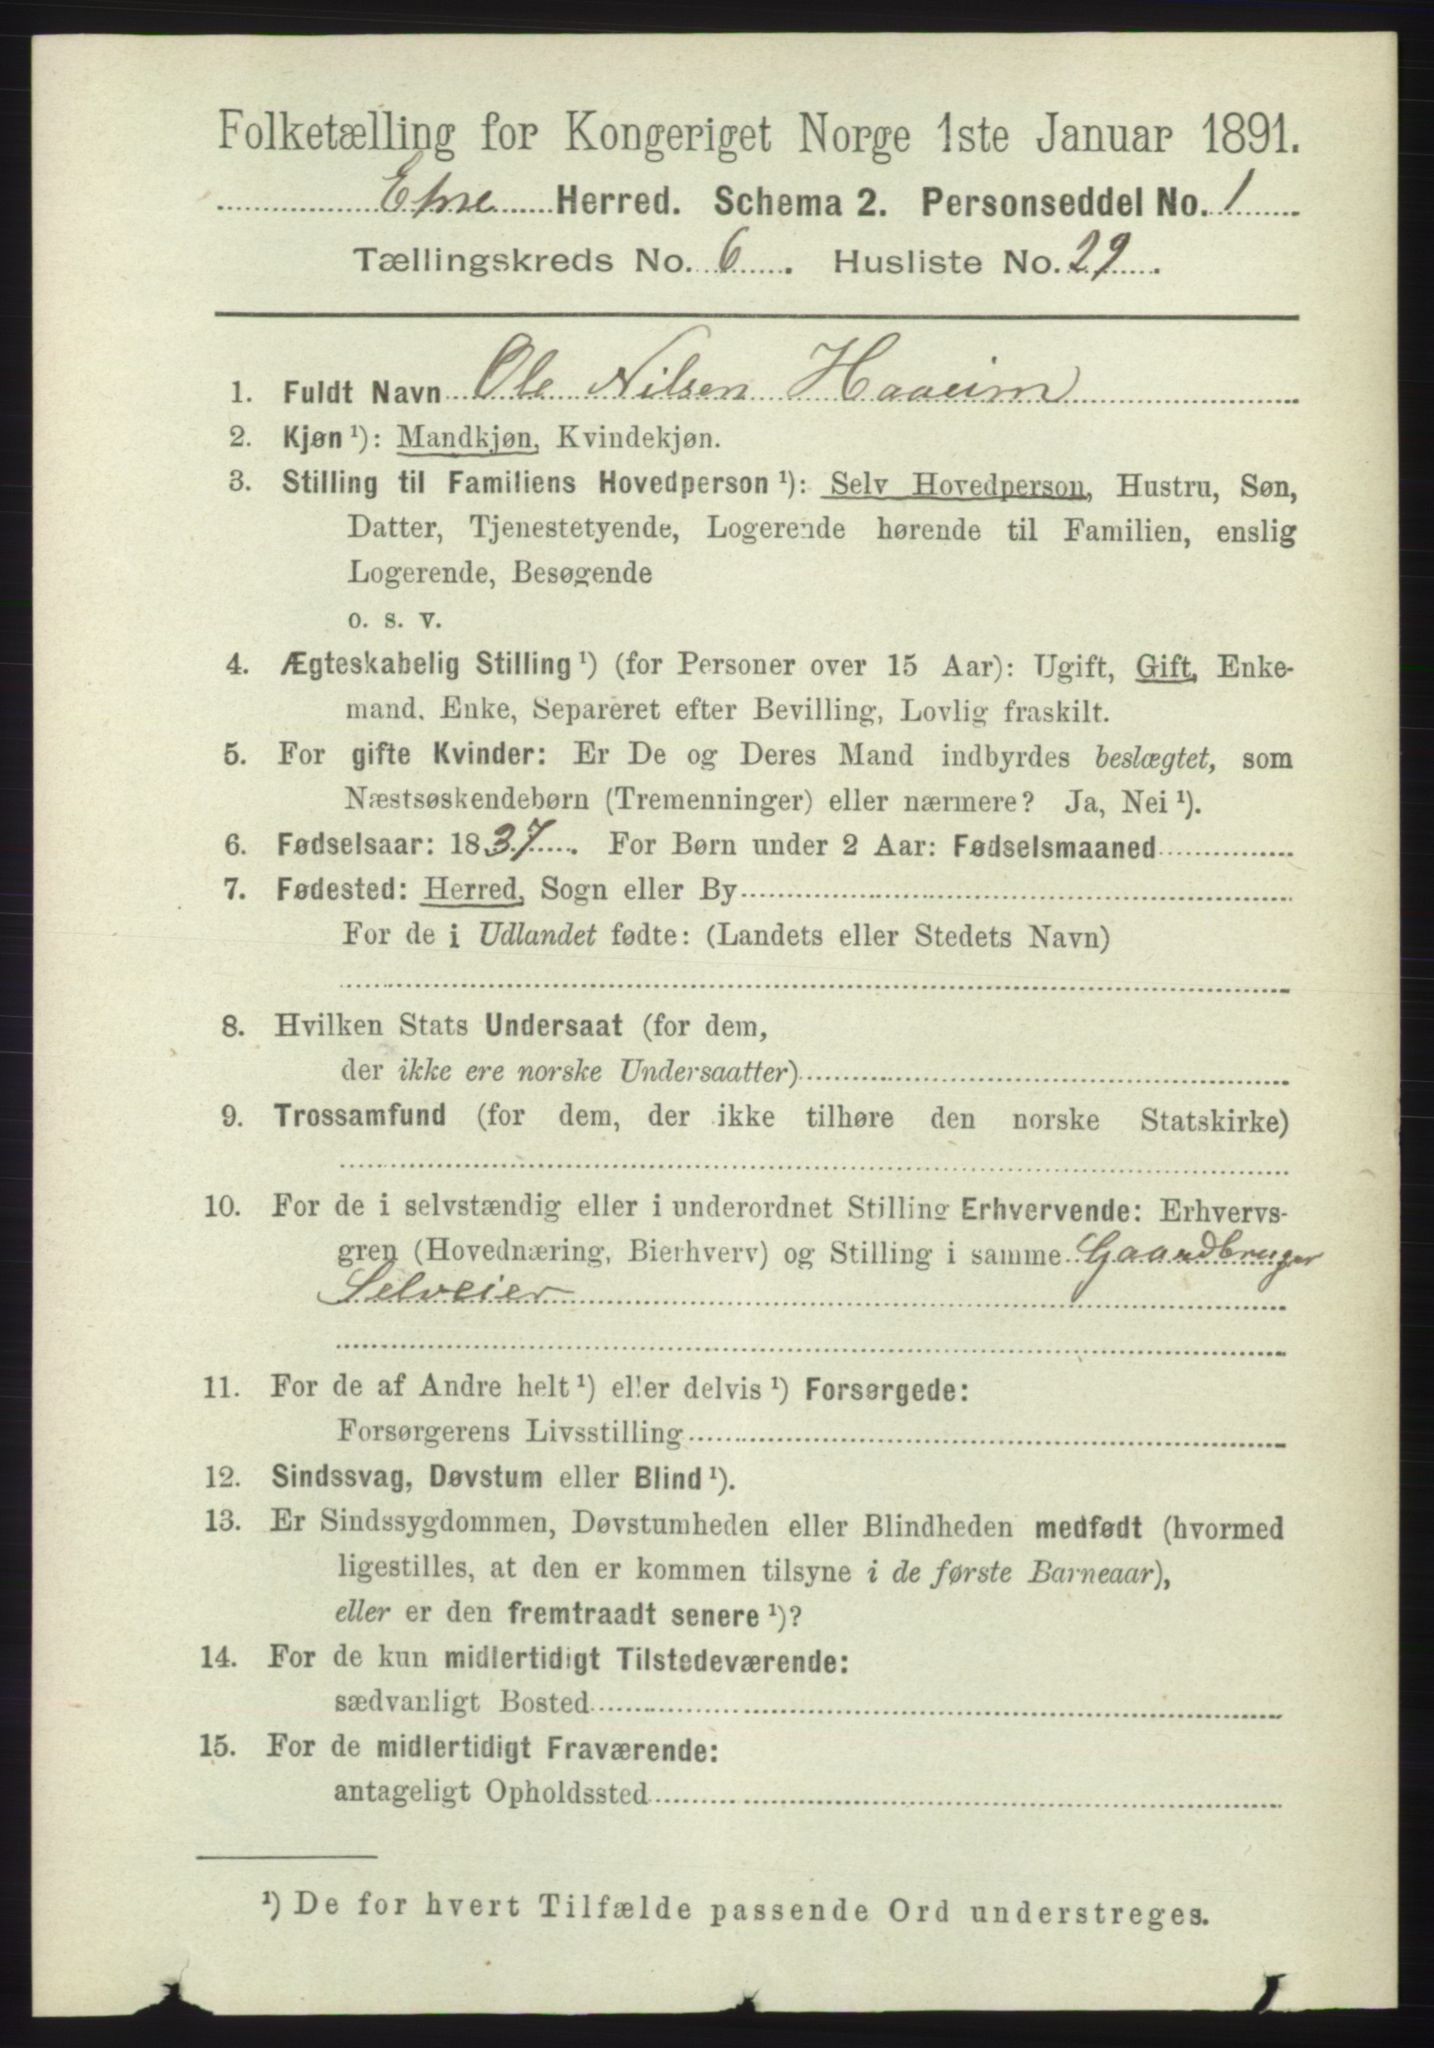 Folketælling for Kongeriget Norge 1ste Januar 1891.
Herred. Schema 2. Personseddel No. 1
Tællingskreds No. 6. Husliste No. 29.
1. Fuldt Navn Ole Nilsen Haaeim
2. Kjøn ¹): Mandkjøn, Kvindekjøn.
3. Stilling til Familiens Hovedperson ¹): Selv Hovedperson, Hustru, Søn,
Datter, Tjenestetyende, Logerende hørende til Familien, enslig
Logerende, Besøgende
o. s. v.
4. Ægteskabelig Stilling ¹) (for Personer over 15 Aar): Ugift, Gift, Enke-
mand, Enke, Separeret efter Bevilling, Lovlig fraskilt.
5. For gifte Kvinder: Er De og Deres Mand indbyrdes beslægtet, som
Næstsøskendebørn (Tremenninger) eller nærmere? Ja, Nei ¹).
6. Fødselsaar: 1837. For Børn under 2 Aar: Fødselsmaaned
7. Fødested: Herred, Sogn eller By
For de i Udlandet fødte: (Landets eller Stedets Navn)
8. Hvilken Stats Undersaat (for dem,
der ikke ere norske Undersaatter)
9. Trossamfund (for dem, der ikke tilhøre den norske Statskirke)
10. For de i selvstændig eller i underordnet Stilling Erhvervende: Erhvervs-
gren (Hovednæring, Bierhverv) og Stilling i samme Gaardbruger
Selveier
11. For de af Andre helt ¹) eller delvis ¹) Forsørgede:
Forsørgerens Livsstilling
12. Sindssvag, Døvstum eller Blind ¹).
13. Er Sindssygdommen, Døvstumheden eller Blindheden medfødt (hvormed
ligestilles, at den er kommen tilsyne i de første Barneaar),
eller er den fremtraadt senere ¹)?
14. For de kun midlertidigt Tilstedeværende:
sædvanligt Bosted
15. For de midlertidigt Fraværende:
antageligt Opholdssted
¹) De for hvert Tilfælde passende Ord understreges.